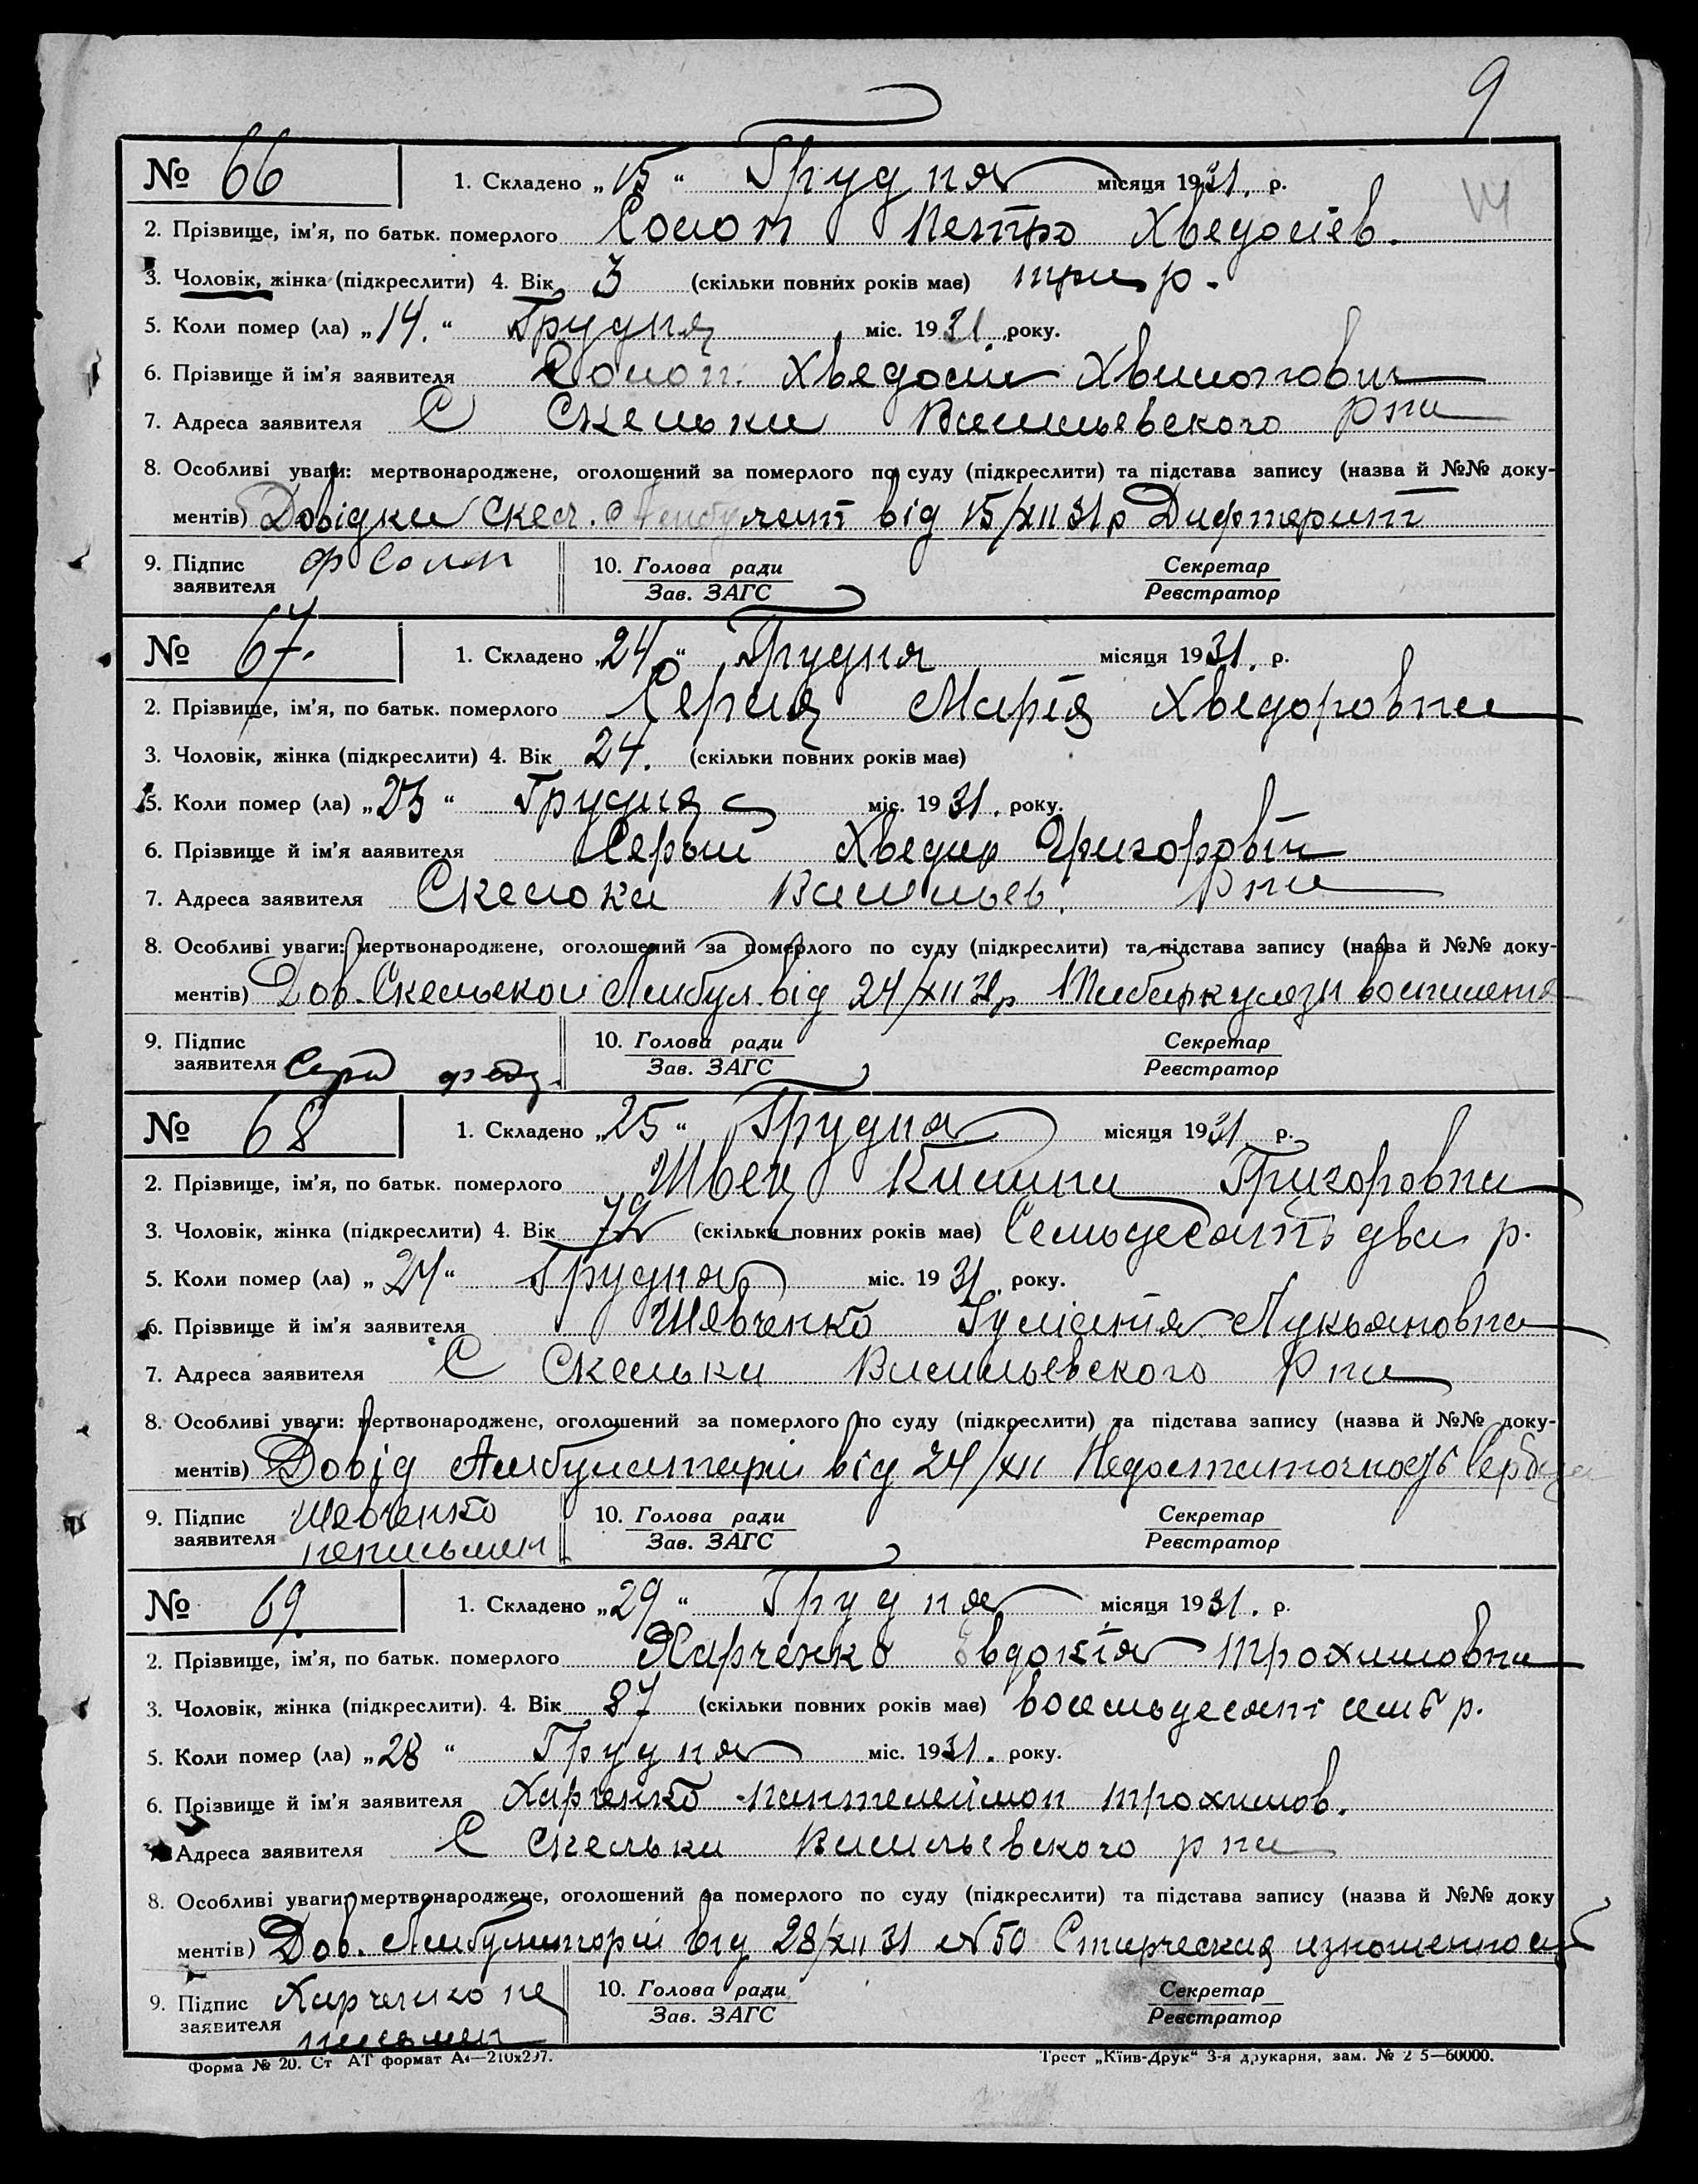 9
№ 66 1. Складено „15“ Грудня місяця 1931. р.
2. Прізвище, ім'я, по батьк. померлого Солоп Петро Хведосіев.
3. Чоловік, жінка (підкреслити) 4. Вік 3 (скільки повних років має) три р.
5. Коли помер (ла) „14.“ Грудня міс. 1931 року.
6. Прізвище й ім'я заявителя Солоп Хведосій
7. Адреса заявителя С Скельки Васильевского рна
8. Особливі уваги: мертвонароджене, оголошений за померлого по суду (підкреслити) та підстава запису (назва й №№ доку-
ментів) Довідки Скел. Амбулат від 15/XII 31р Дифтерит
9. Підпис заявителя Ф Солоп 10. Голова ради Секретар
Зав. ЗАГС Реєстратор
№ 67. 1. Складено „24“ Грудня місяця 1931. р.
2. Прізвище, ім'я, по батьк. померлого Серая Марія Хведоровна
3. Чоловік, жінка (підкреслити) 4. Вік 24. (скільки повних років має)
5. Коли помер (ла) „23“ Грудня міс. 1931. року.
6. Прізвище й ім'я заявителя Серый Хведир Григоровіч
7. Адреса заявителя Скельки Васильев. Рна
8. Особливі уваги: мертвонароджене, оголошений за померлого по суду (підкреслити) та підстава запису (назва й №№ доку-
ментів) Дов. Скельской Амбул. від 24/XII 31р
9. Підпис заявителя 10. Голова ради Секретар
Зав. ЗАГС Реєстратор
№ 68 1. Складено „25“ Грудня місяця 1931 р.
2. Прізвище, ім'я, по батьк. померлого Швец Килина Григоровна
3. Чоловік, жінка (підкреслити) 4. Вік 72 (скільки повних років має) Семьдесять два р.
5. Коли помер (ла) „24“ Грудня міс. 1931. року.
6. Прізвище й ім'я заявителя Шевченко Лукьяновна
7. Адреса заявителя С Скельки Васильевского Рна
8. Особливі уваги: мертвонароджене, оголошений за померлого по суду (підкреслити) та підстава запису (назва й №№ доку-
ментів) Довід Амбулаторій від 24/XII Недостаточность
9. Підпис заявителя Шевченко 10. Голова ради Секретар
неписьмен Зав. ЗАГС Реєстратор
№ 69. 1. Складено „29“ Грудня місяця 1931. р.
2. Прізвище, ім'я, по батьк. померлого Харченко Євдокія Трохимовна
3. Чоловік, жінка (підкреслити). 4. Вік 87 (скільки повних років має) восемьдесят семь р.
5. Коли помер (ла) „28“ Грудня міс. 1931. року.
6. Прізвище й ім'я заявителя Харченко Пантелеймон Трохимов.
7. Адреса заявителя С Скельки Васильевского рна
8. Особливі уваги: мертвонароджене, оголошений за померлого по суду (підкреслити) та підстава запису (назва й №№ доку
ментів) Дов. Амбулаторій від 28/XII 31 №50 Старческая изношенност
9. Підпис заявителя Харченко не 10. Голова ради Секретар
письмен Зав. ЗАГС Реєстратор
Форма № 20. Ст АТ формат А4—210х297. Трест „Київ-Друк“ 3-я друкарня, зам. № 2 5—60000.